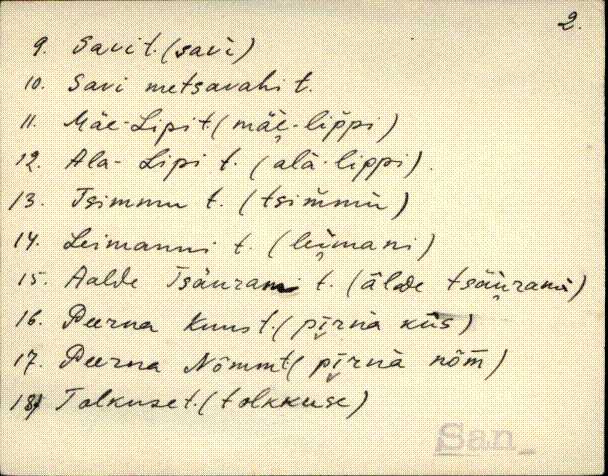 2.
9. Savi t. (savi)
10. Savi metsavahi t.
11. Mäe-Lipi t. (mäe-lippi)
12. Ala-Lipi t. (alà-lippi)
13. Tsimmu t. (tsim̆mù)
14. Leimanni t. (leimani)
15. Aalde Tsäurami t. (ālde tsäuramì)
16. Peerna Kuus t. (pīrnà kūs)
17. Peerna Nõmm t (pīrnà nõm̄)
18. Tolkuse t. (tolkkuse)
San.